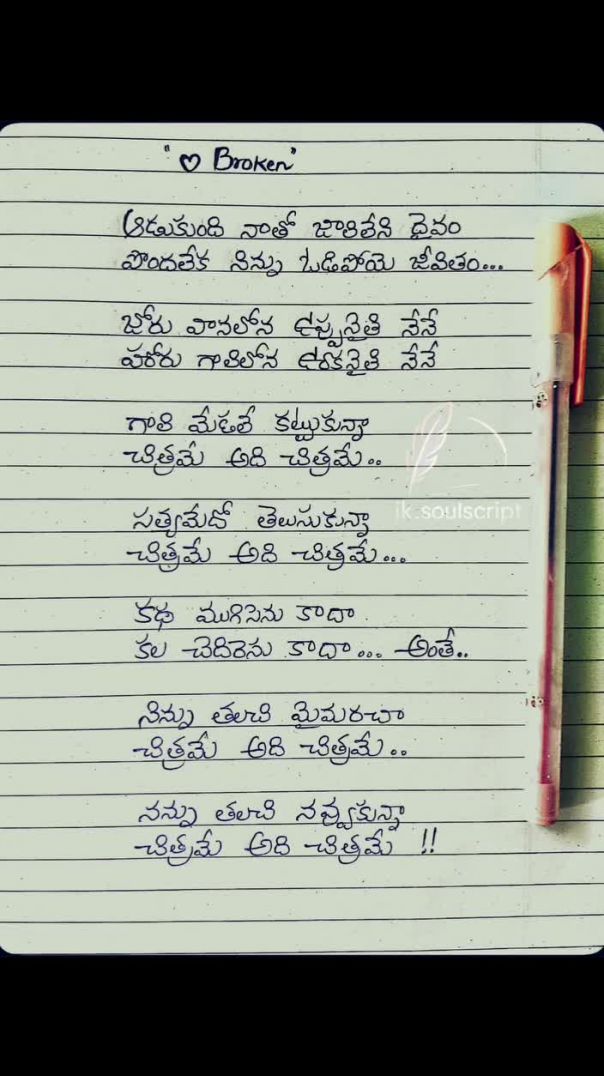 "♡ Broken"
ఆడుకుంది నాతో జాలిలేని దైవం
పొందలేక నిన్ను ఓడిపోయె జీవితం...
జోరు వానలోన ఉప్పునైతి నేనే
హోరు గాలిలోన ఊకనైతి నేనే
గాలి మేడలే కట్టుకున్నా
చిత్రమే అది చిత్రమే..
సత్యమేదో తెలుసుకున్నా
చిత్రమే అది చిత్రమే...
కథ ముగిసెను కాదా
కల చెదిరెను కాదా... అంతే..
నిన్ను తలచి మైమరచా
చిత్రమే అది చిత్రమే..
నన్ను తలచి నవ్వుకున్నా
చిత్రమే అది చిత్రమే !!
ik.soulscript